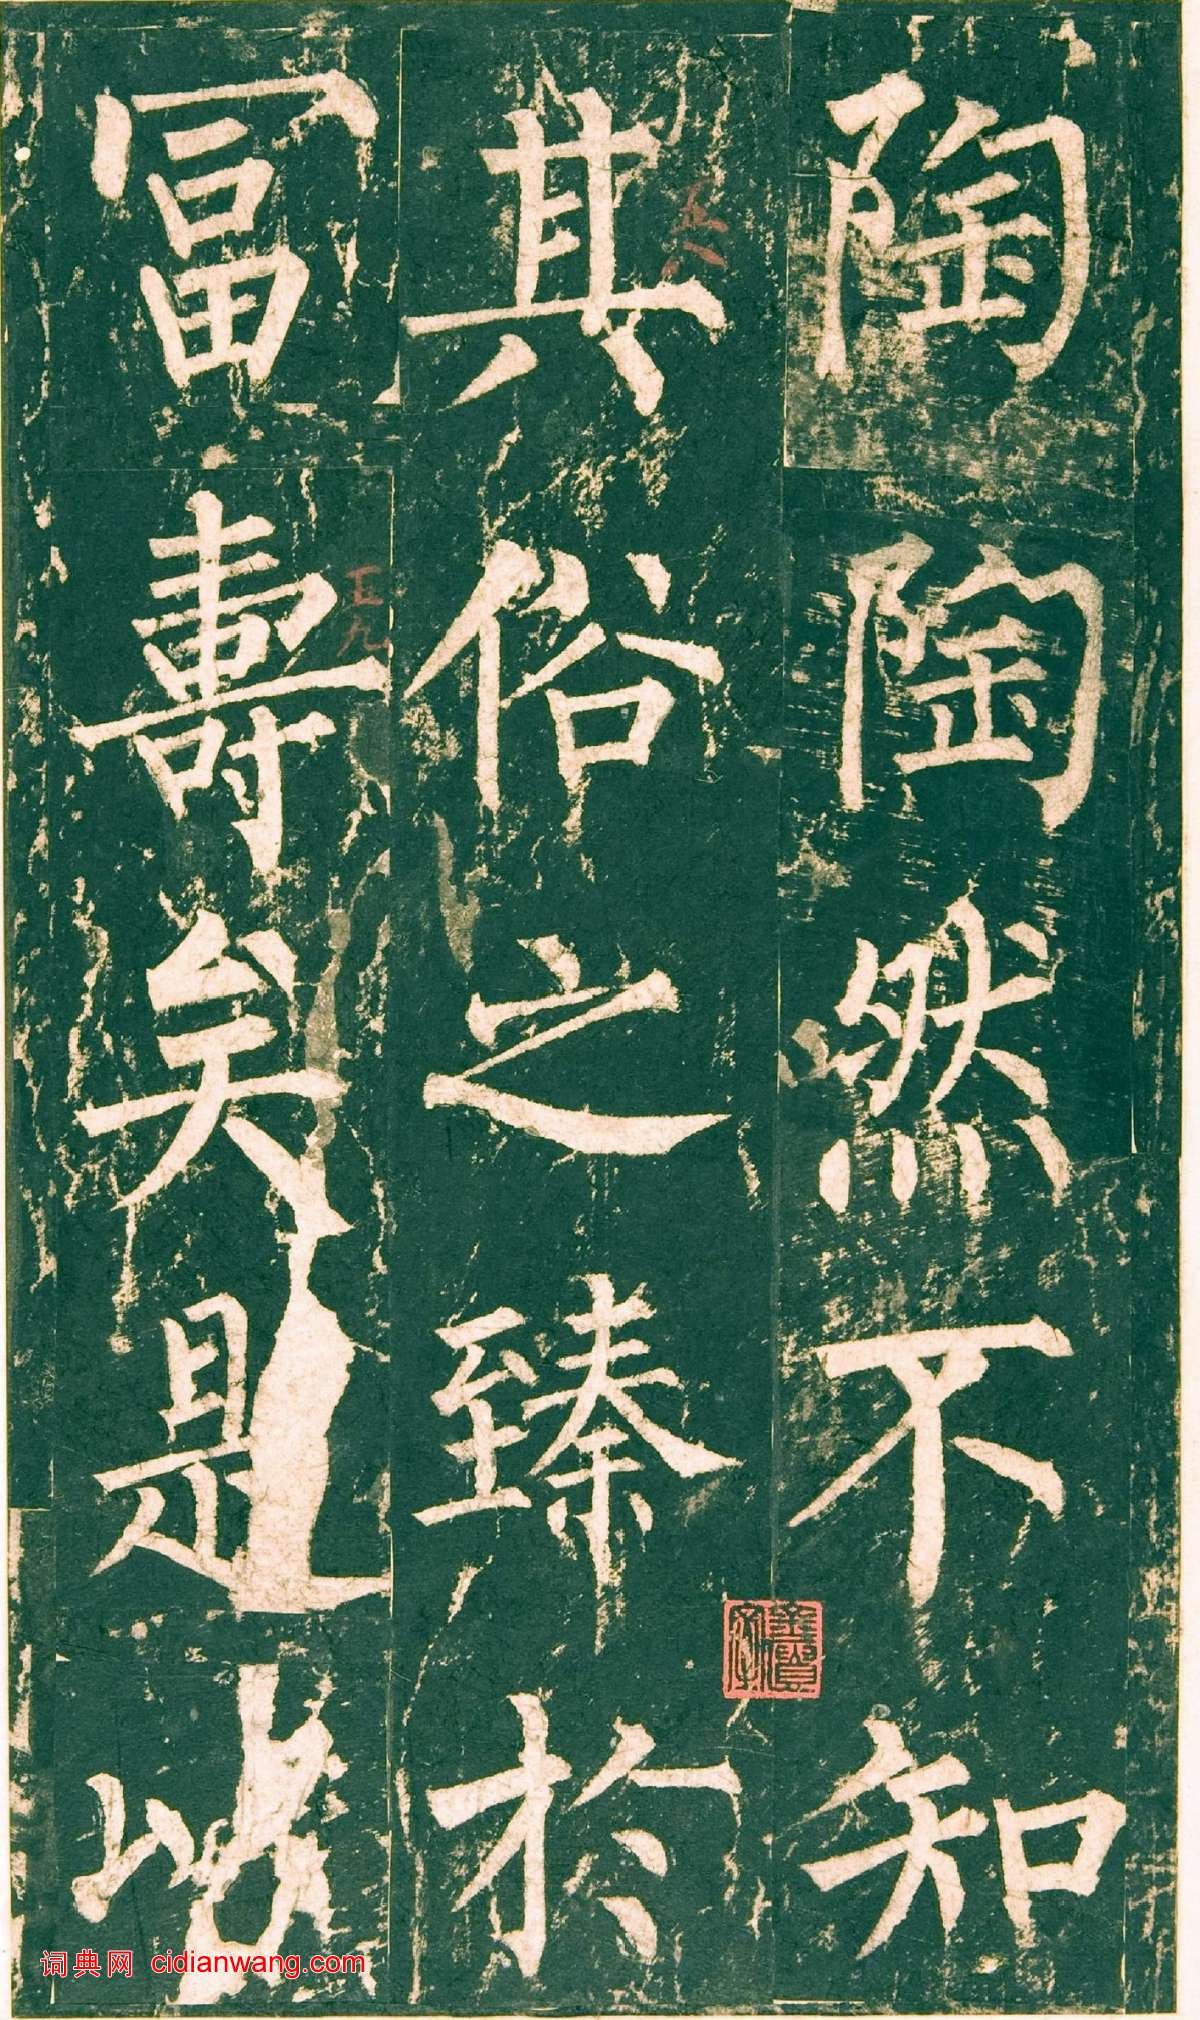 陶陶然不知
其俗之臻於
冨壽矣是
五八
五九
词典网 cidianwang.com